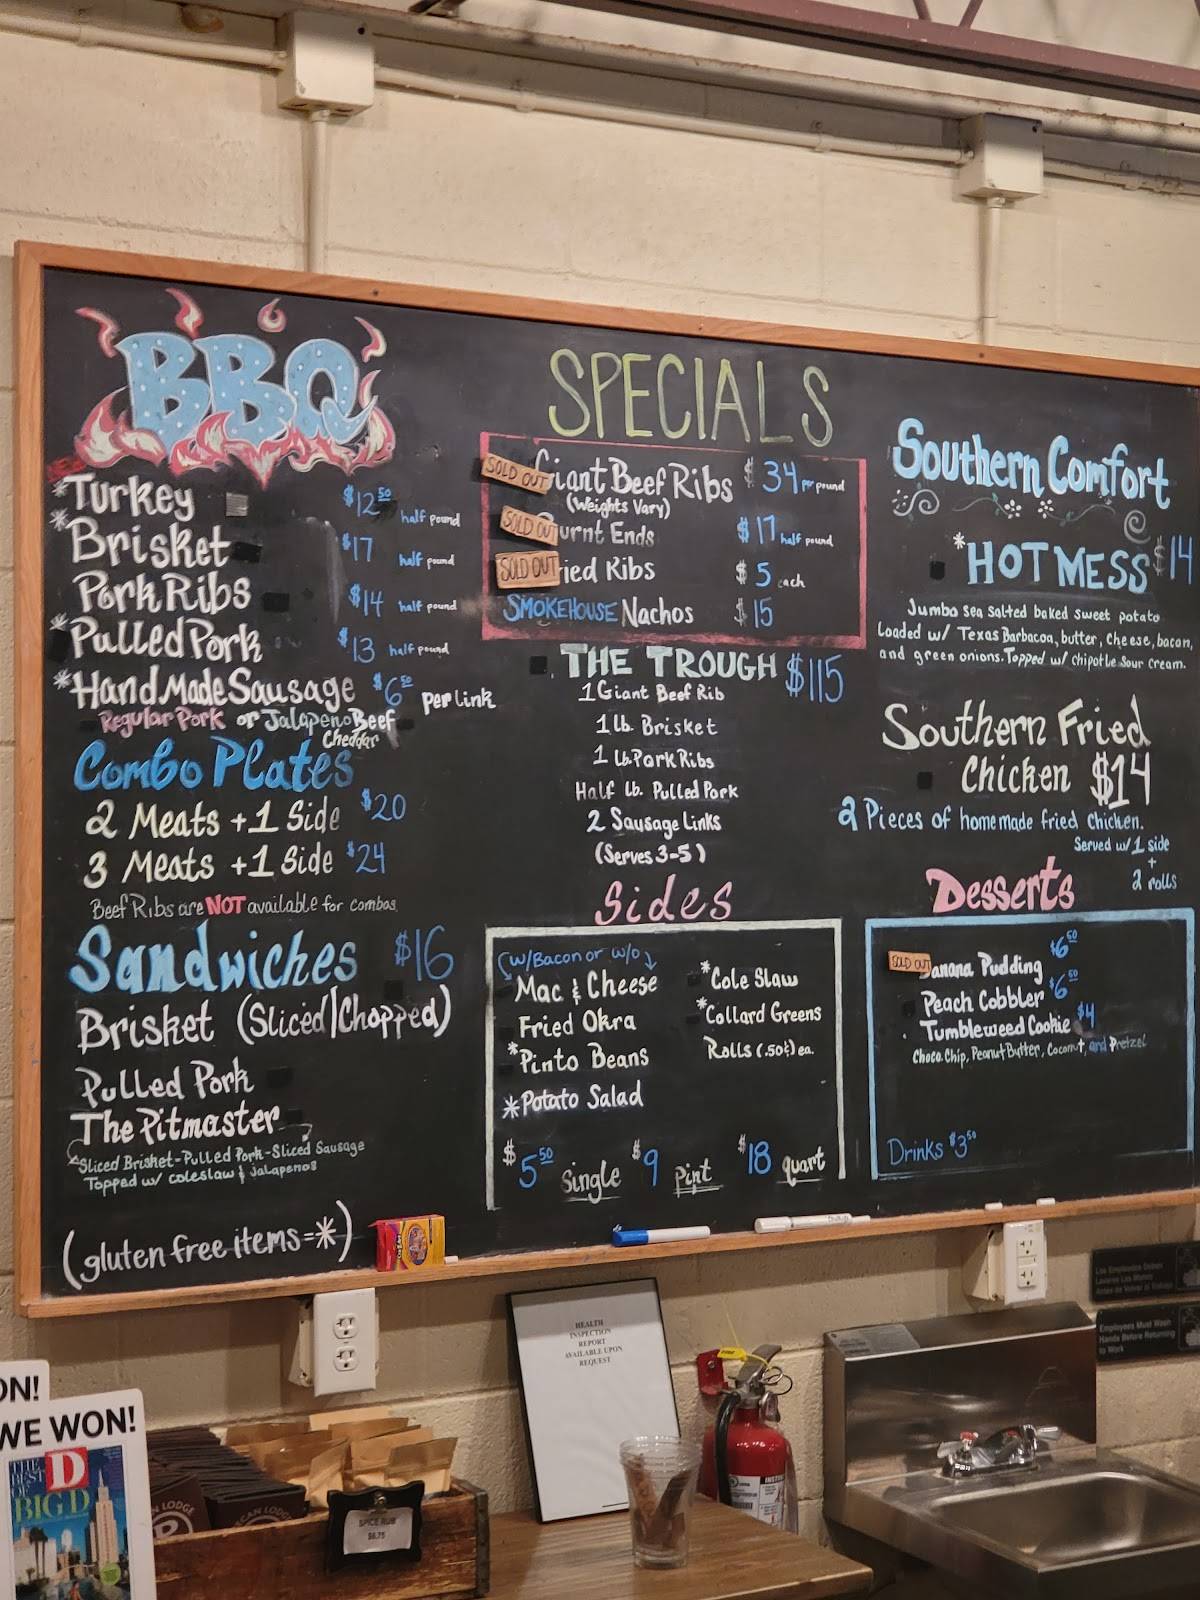 BBQ
*Turkey $12.50 half pound
*Brisket $17 half pound
Pork Ribs $14 half pound
*Pulled Pork $13 half pound
*Hand Made Sausage $6.50 per link
Regular Pork or Jalapeno Beef
Cheddar
Combo Plates
2 Meats + 1 Side $20
3 Meats + 1 Side $24
Beef Ribs are NOT available for combos
Sandwiches $16
Brisket (Sliced/Chopped)
Pulled Pork
The Pitmaster
Sliced Brisket-Pulled Pork-Sliced Sausage
Topped w/ coleslaw & jalapenos
(gluten free items=*)
SPECIALS
SOLD OUT Giant Beef Ribs $34 per pound
(Weights Vary)
SOLD OUT urnt Ends $17 half pound
SOLD OUT ried Ribs $5 each
SMOKEHOUSE Nachos $15
THE TROUGH $115
1 Giant Beef Rib
1 lb. Brisket
1 lb. Pork Ribs
Half lb. Pulled Pork
2 Sausage Links
(Serves 3-5)
Sides
(w/Bacon or w/o)
Mac & Cheese
Fried Okra
*Pinto Beans
*Potato Salad
*Cole Slaw
*Collard Greens
Rolls (.50¢) ea.
$5.50 Single $9 Pint $18 quart
Southern Comfort
*HOT MESS $14
Jumbo sea salted baked sweet potato
Loaded w/ Texas Barbacoa, butter, cheese, bacon,
and green onions. Topped w/ chipotle sour cream.
Southern Fried
Chicken $14
2 Pieces of homemade fried chicken.
Served w/ 1 side
+
2 rolls
Desserts
SOLD OUT anana Pudding $6.50
Peach Cobbler $6.50
Tumbleweed Cookie $4
Choco. Chip, Peanut Butter, Coconut, and Pretzel
Drinks $3.50
HEALTH
INSPECTION
REPORT
AVAILABLE UPON
REQUEST
Employees Must Wash
Hands Before Returning
to Work
ON!
WE WON!
THE
BEST
OF
D
BIG D
SPICE RUB
$6.75
LODGE